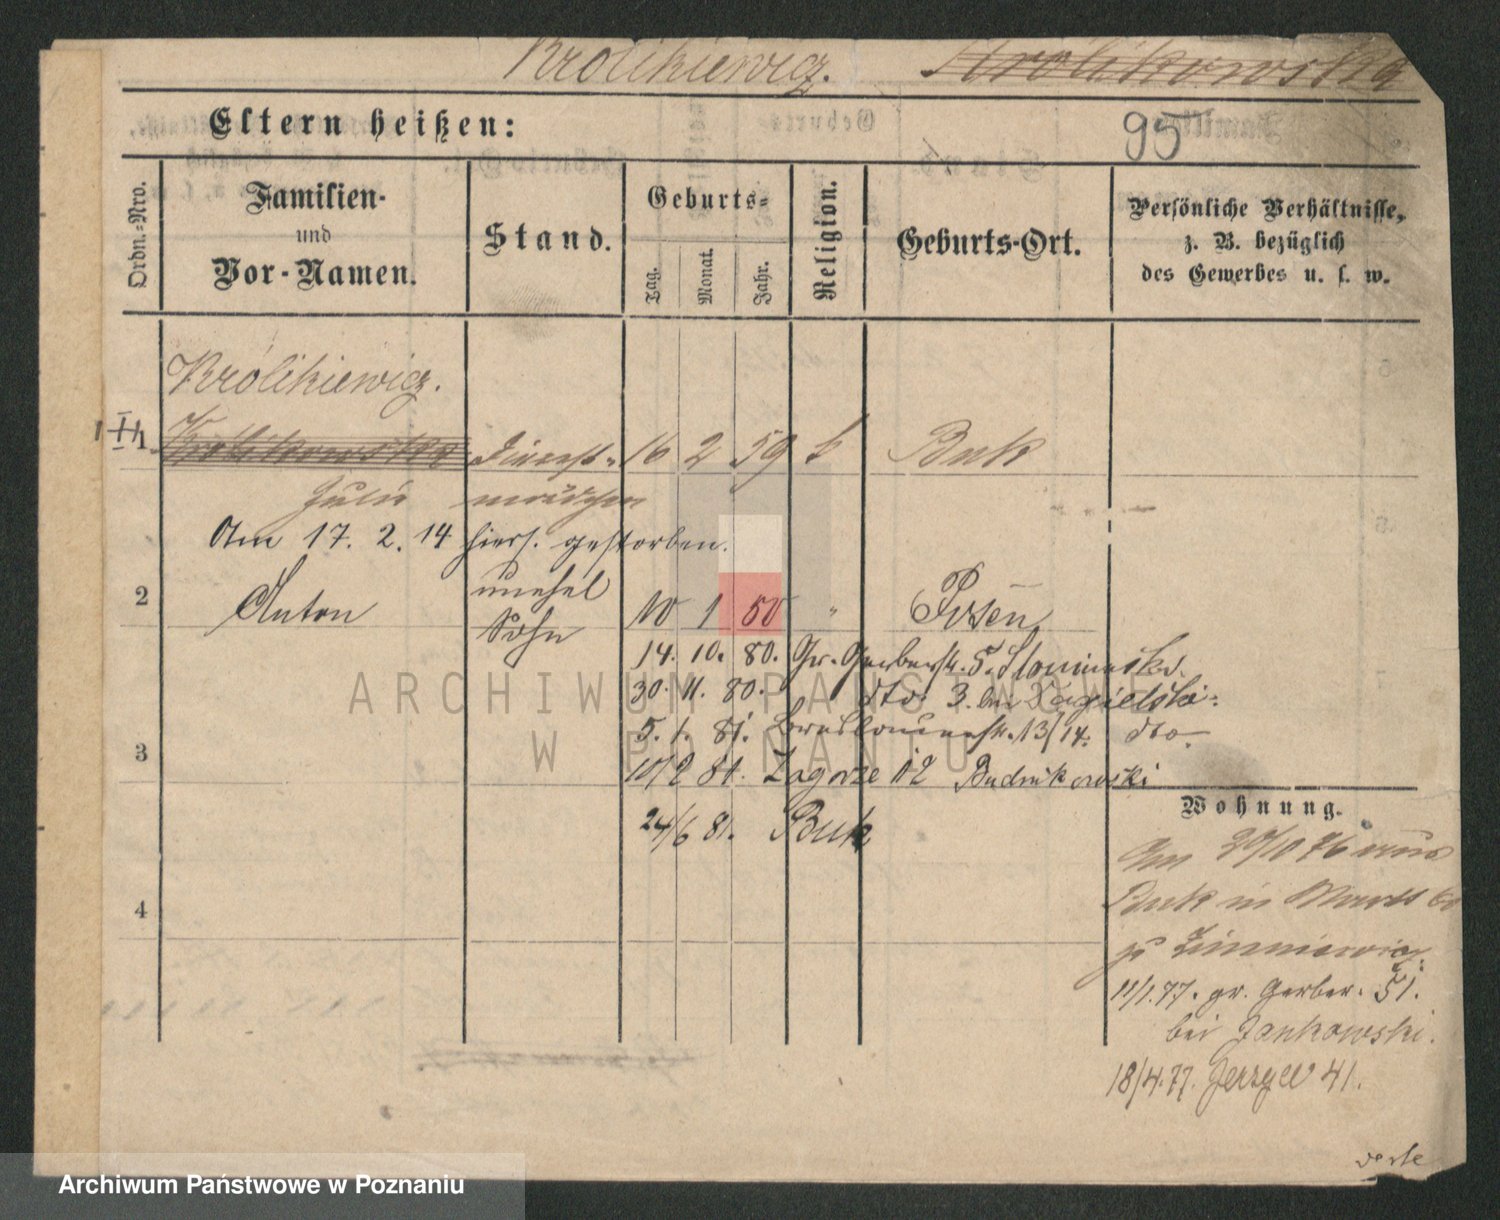 Krolikiewicz. Krolikowska
Eltern heißen:
95
Ordn.-Nro.
Familien-
und
Vor-Namen.
Stand.
Geburts-
Tag.
Monat.
Jahr.
Religion.
Geburts-Ort.
Persönliche Verhältnisse,
z. B. bezüglich
des Gewerbes u. s. w.
Królikiewicz.
1 Krolikowska Dienst- 16 2 59 k Buk
Julie mädchen
Am 17. 2. 14 hiers. gestorben.
unehel
2 Anton Sohn 10 1 80 " Posen
14. 10. 80. Gr. Gerberstr. 5. Slominski.
30. 11. 80. dto. 3. bei
5. 1. 81. 13/14. dto.
3 10/2 81. Zagorze 12 Budnikowski
24/6 81. Buk
Wohnung.
Am 20/10 76 aus
Buk in
zu
4
11/1. 77. gr. Gerber. 51.
bei Jankowski.
18/4. 77. Jerzyce 41.
verte
ARCHIWUM PAŃSTWOWE
W POZNANIU
Archiwum Państwowe w Poznaniu